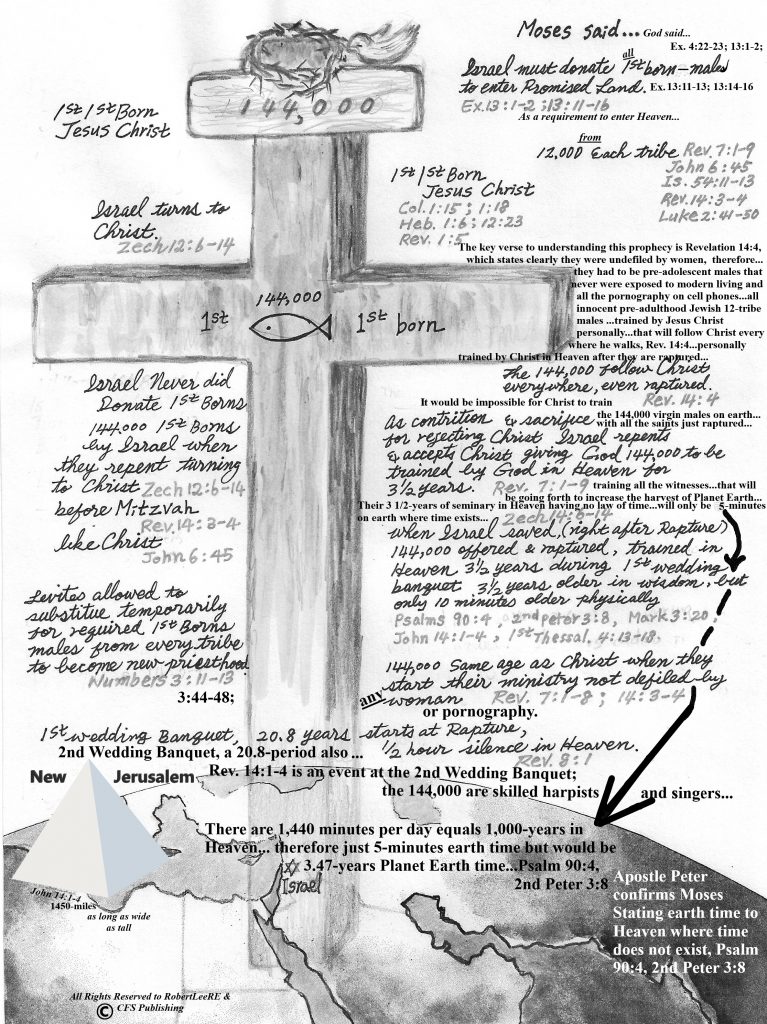 Moses said... God said...
Ex. 4:22-23; 13:1-2;
all
Israel must donate 1st born-males
to enter Promised Land. Ex. 13:11-13; 13:14-16
Ex. 13:1-2; 13:11-16
As a requirement to enter Heaven...
from
12,000 Each tribe Rev. 7:1-9
John 6:45
Is. 54:11-13
Rev. 14:3-4
Luke 2:41-50
144,000
1st 1st Born
Jesus Christ
1st 1st Born
Jesus Christ
Col. 1:15; 1:18
Heb. 1:6; 12:23
Rev. 1:5
Israel turns to
Christ.
Zech 12:6-14
The key verse to understanding this prophecy is Revelation 14:4,
which states clearly they were undefiled by women, therefore...
they had to be pre-adolescent males that
never were exposed to modern living and
all the pornography on cell phones...all
innocent pre-adulthood Jewish 12-tribe
males ...trained by Jesus Christ
personally...that will follow Christ every
where he walks, Rev. 14:4...personally
trained by Christ in Heaven after they are raptured...
144,000
1st
1st born
The 144,000 follow Christ
everywhere, even raptured.
Rev. 14:4
It would be impossible for Christ to train
the 144,000 virgin males on earth...
with all the saints just raptured...
As contrition & sacrifice
for rejecting Christ Israel repents
& accepts Christ giving God 144,000 to be
trained by God in Heaven for
3½ years. Rev. 7:1-9 training all the witnesses...that will
be going forth to increase the harvest of Planet Earth...
Their 3 1/2-years of seminary in Heaven having no law of time...will only be 5-minutes
on earth where time exists... Zech 14:6-14
when Israel saved, (right after Rapture)
144,000 offered & raptured, trained in
Heaven 3½ years during 1st wedding
banquet 3½ years older in wisdom, but
only 10 minutes older physically
Psalms 90:4, 2nd Peter 3:8, Mark 3:20,
John 14:1-4, 1st Thessal. 4:13-18
144,000 Same age as Christ when they
start their ministry not defiled by
any woman Rev. 7:1-8; 14:3-4
or pornography.
Israel Never did
Donate 1st Borns
144,000 1st Borns
by Israel when
they repent turning
to Christ Zech 12:6-14
before Mitzvah
Rev. 14:3-4
like Christ
John 6:45
Levites allowed to
substitue temporarily
for required 1st Borns
males from every tribe
to become new priesthood
Numbers 3:11-13
3:44-48;
1st wedding Banquet, 20.8 years starts at Rapture,
½ hour silence in Heaven.
Rev. 8:1
2nd Wedding Banquet, a 20.8-period also ...
New Jerusalem
Rev. 14:1-4 is an event at the 2nd Wedding Banquet;
the 144,000 are skilled harpists and singers...
There are 1,440 minutes per day equals 1,000-years in
Heaven... therefore just 5-minutes earth time but would be
3.47-years Planet Earth time...Psalm 90:4,
2nd Peter 3:8
Israel
John 14:1-4
1450-miles
as long as wide
as tall
Apostle Peter
confirms Moses
Stating earth time to
Heaven where time
does not exist, Psalm
90:4, 2nd Peter 3:8
All Rights Reserved to RobertLeeRE &
© CFS Publishing